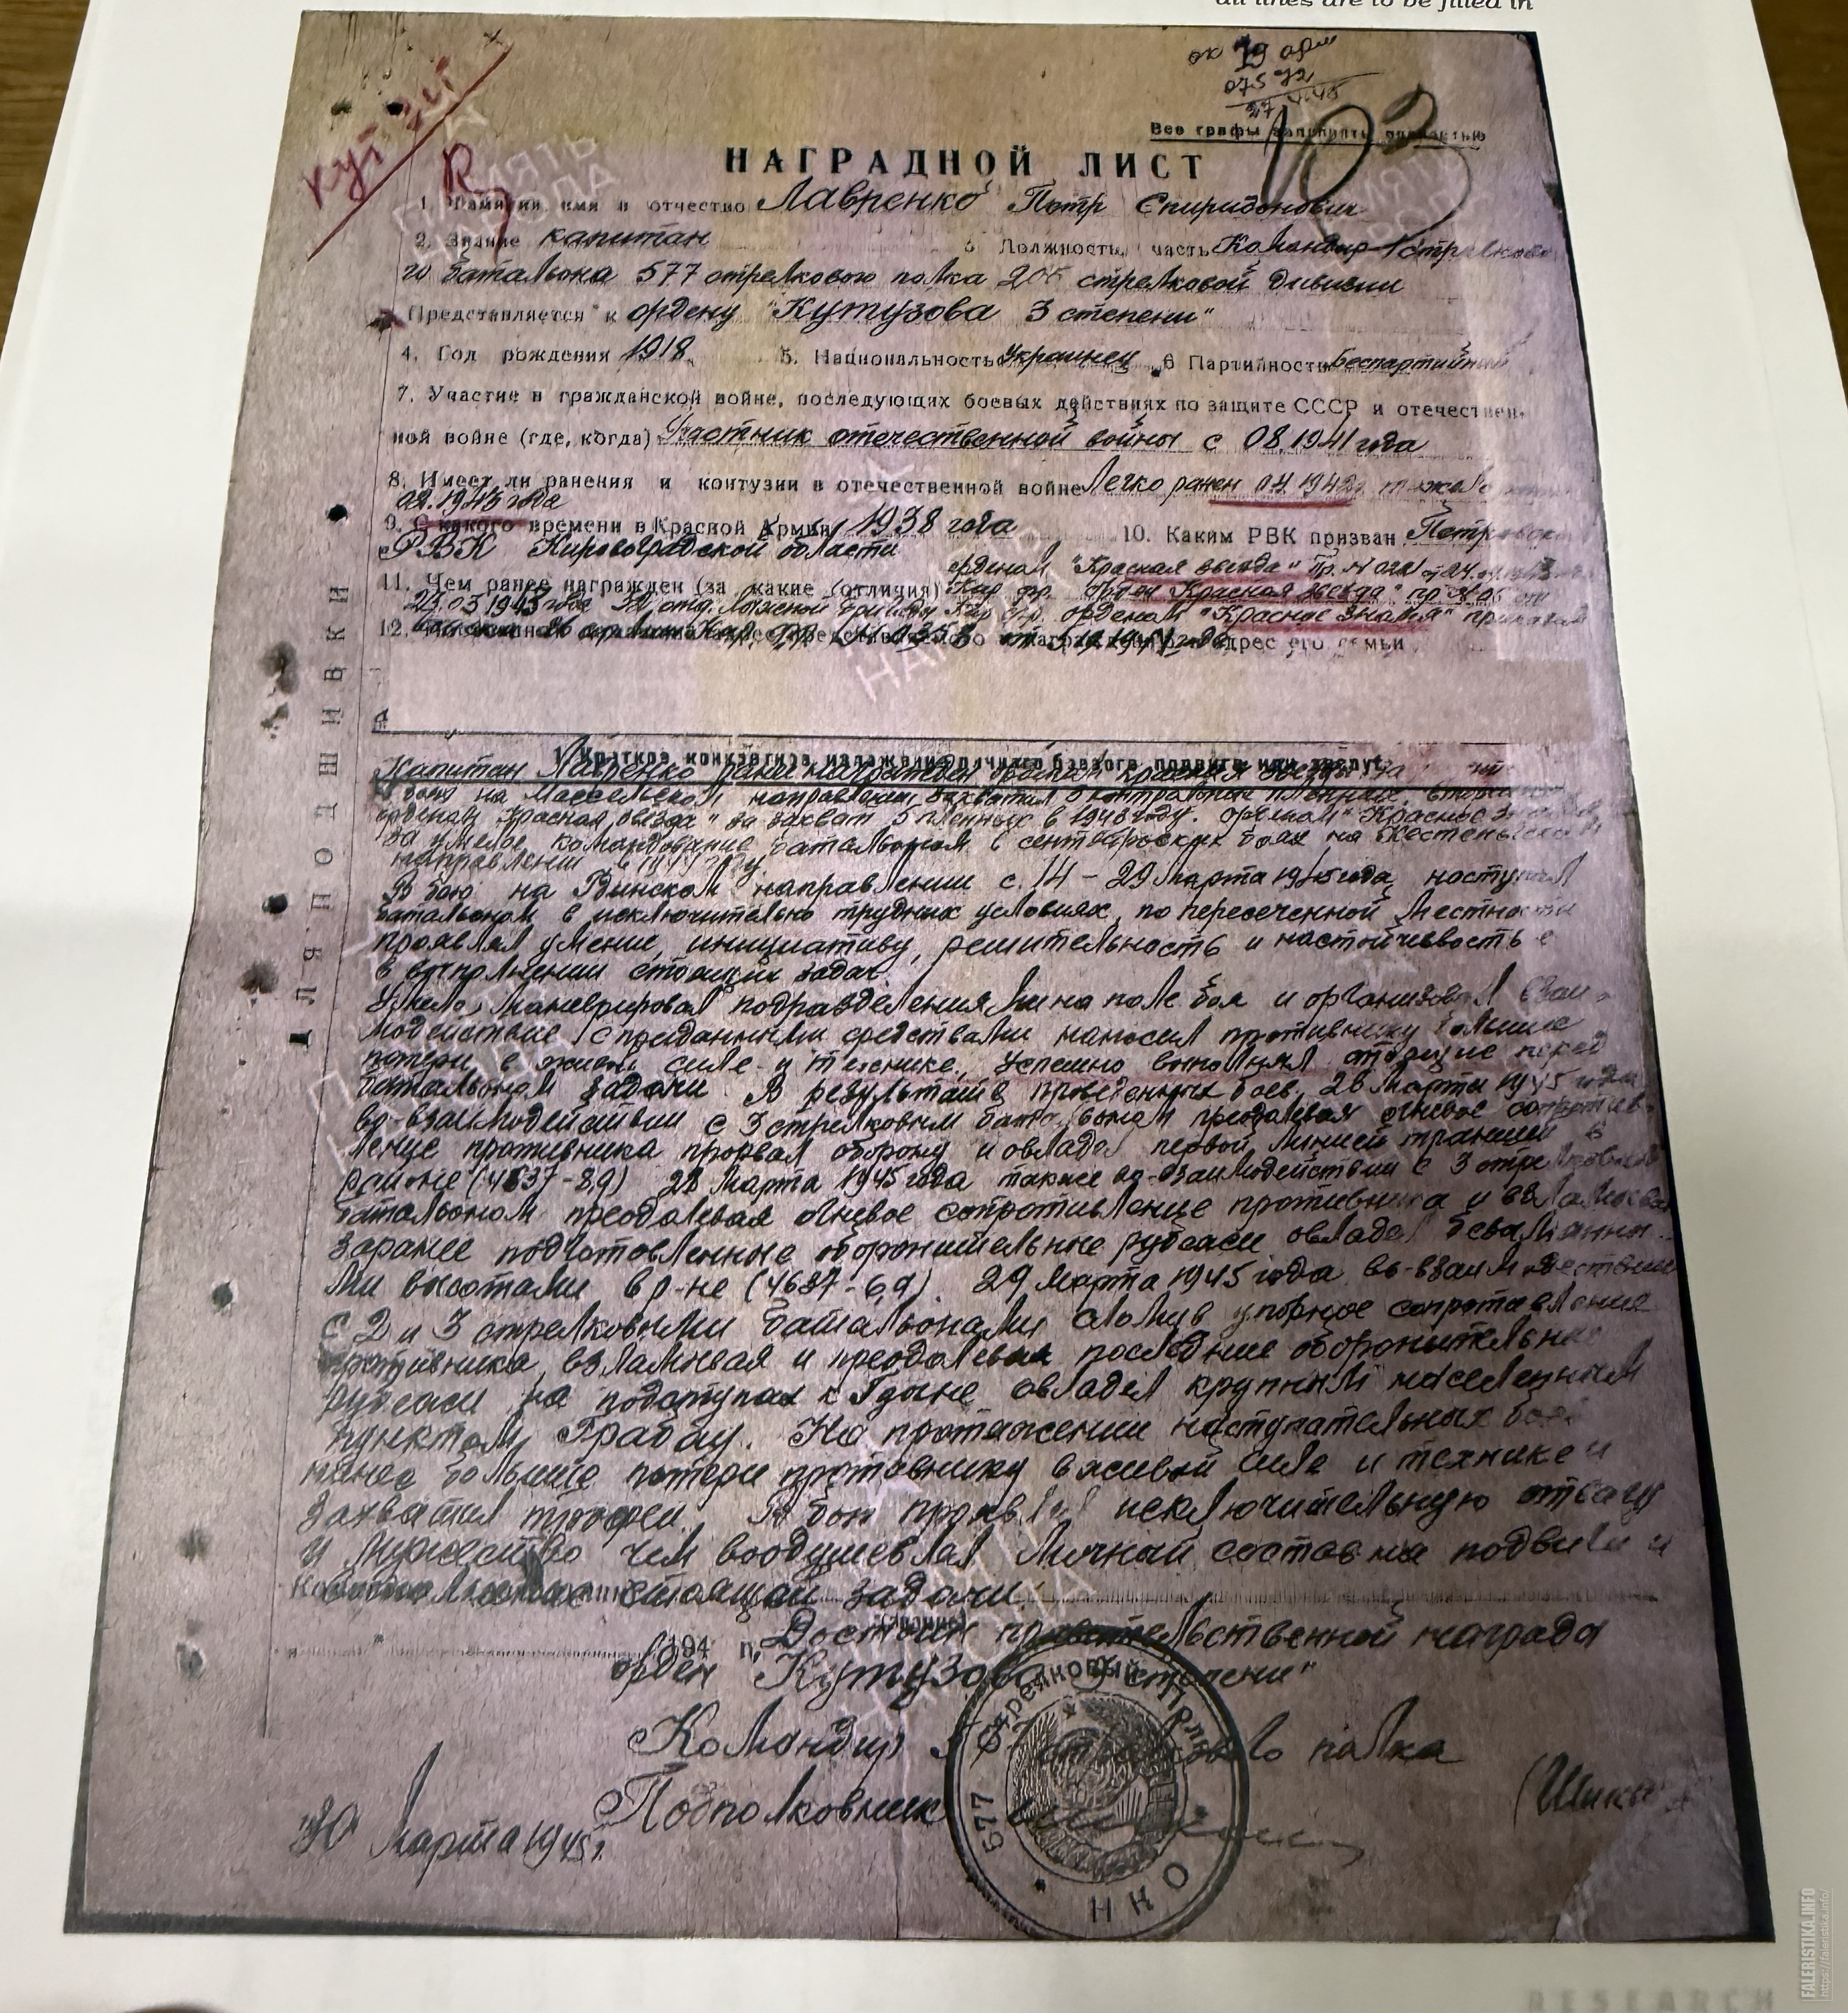 all lines are to be filled in
ок 79 арм
Кут 3 ст
Все графы заполнять полностью
НАГРАДНОЙ ЛИСТ
1. Фамилия имя и отчество Лавренко Петр Спиридонович
2. Звание капитан 3 Должность, часть Командир 1 стрелково
го батальона 577 стрелкового полка 205 стрелковой дивизии
Представляется к ордену "Кутузова 3 степени"
4. Год рождения 1918 5. Национальность Украинец 6 Партийность беспартийный
7. Участие в гражданской войне, последующих боевых действиях по защите СССР и отечествен-
ной войне (где, когда) Участник отечественной войны с 08.1941 года
8. Имеет ли ранения и контузии в отечественной войне Легко ранен 04.1942
02.1943 года
9. С какого времени в Красной Армии 1938 года 10. Каким РВК призван
РВК Кировоградской области
орденом "Красная звезда"
11. Чем ранее награжден (за какие отличия) Кар. фр. Орден "Красная звезда"
23.03.1943 года Кар. фр. орденом "Красное Знамя" приказом
12. адрес его семьи
ДЛЯ ПОДШИВКИ
1. Краткое конкретное изложение личного боевого подвига или заслуг
Капитан Лавренко ранее награжден орденом Красная звезда за
бою на Массельском направлении, захватил контрольных пленных, вторым
орденом "Красная звезда" за захват 5 пленных в 1943 году. орденом "Красное Знамя"
за умелое командование батальоном в сентябрьских боях на Кестеньгском
направлении в 1944 году.
В бою на направлении с 14 - 29 марта 1945 года, наступал
батальоном в исключительно трудных условиях, по пересеченной местности
проявлял умение, инициативу, решительность и настойчивость
в выполнении стоящих задач.
Умело маневрировал подразделениями на поле боя и организовал взаи-
модействие с приданными средствами наносил противнику большие
потери в живой силе и технике, успешно выполнял стоящие перед
батальоном задачи. В результате проведенных боев, 26 марта 1945 года
во-взаимодействии с 3 стрелковым батальоном преодолевая огневое сопротив-
ление противника прорвал оборону и овладел первой линией траншей в
районе (4637-8,9) 28 марта 1945 года также во-взаимодействии с 3 стрелковым
батальоном преодолевая огневое сопротивление противника и взламывая
заранее подготовленные оборонительные рубежи овладел безымянны-
ми высотами в р-не (4637-6,9). 29 марта 1945 года во-взаимодействии
с 2 и 3 стрелковыми батальонами сломив упорное сопротивление
противника, взламывая и преодолевая последние оборонительные
рубежи на подступах к Гдыне овладел крупным населенным
пунктом Грабау. На протяжении наступательных боев
нанес большие потери противнику в живой силе и технике и
захватил трофеи. В бою проявлял исключительную отвагу
и мужество чем воодушевлял личный состав на подвиги и
стоящей задачи.
194 г. Достоин правительственной награда
орден "Кутузова 3 степени"
Командир 577 стрелкового полка
Подполковник
30 марта 1945 г.
577 Стрелковый Полк
НКО
RESEARCH
FALERISTIKA.INFO
https://faleristika.info/